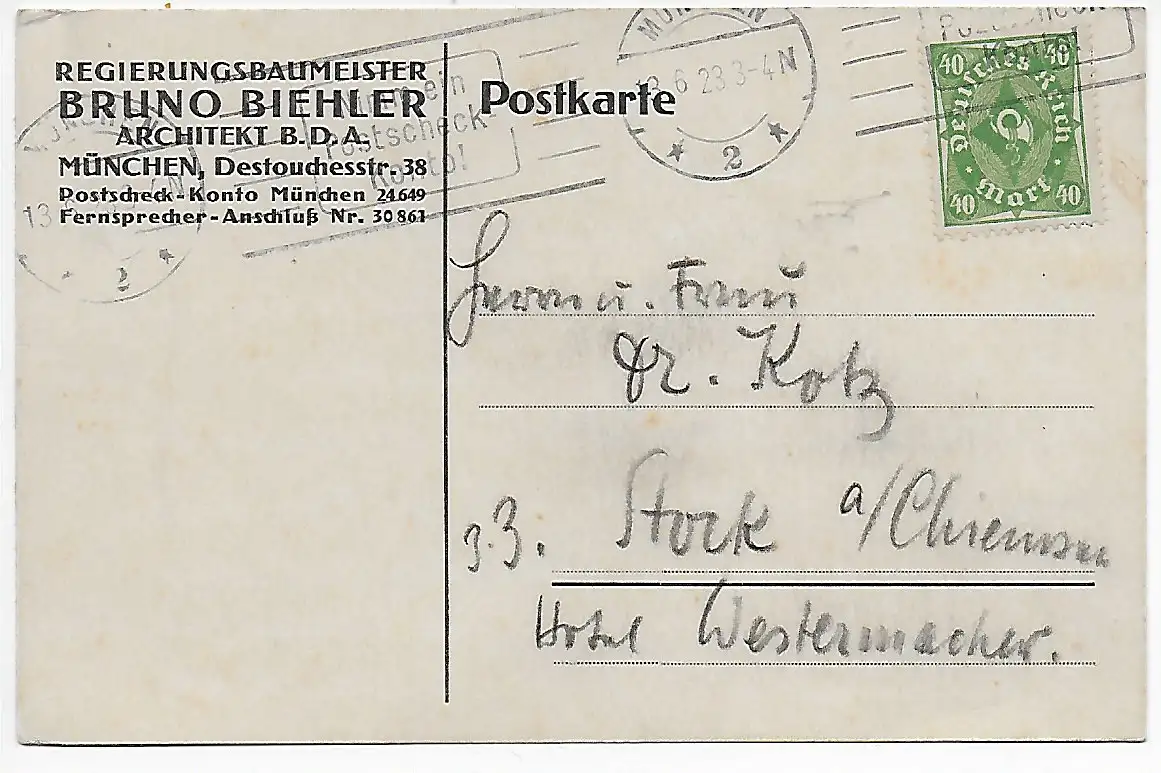 REGIERUNGSBAUMEISTER
BRUNO BIEHLER
ARCHITEKT B.D.A.
MÜNCHEN, Destouchesstr. 38
Postscheck-Konto München 24649
Fernsprecher-Anschluß Nr. 30861
Postkarte
MÜNCHEN
13.6 23 3-4 N
2
Postscheck
Konto!
MÜNCHEN
13
N
2
ein
Postscheck
Konto!
40 40
Deutsches Reich
Mark
40 40
Herrn u. Frau
Dr. Kotz
z. Z. Stock a/Chiemsee
Hotel Westermacher.